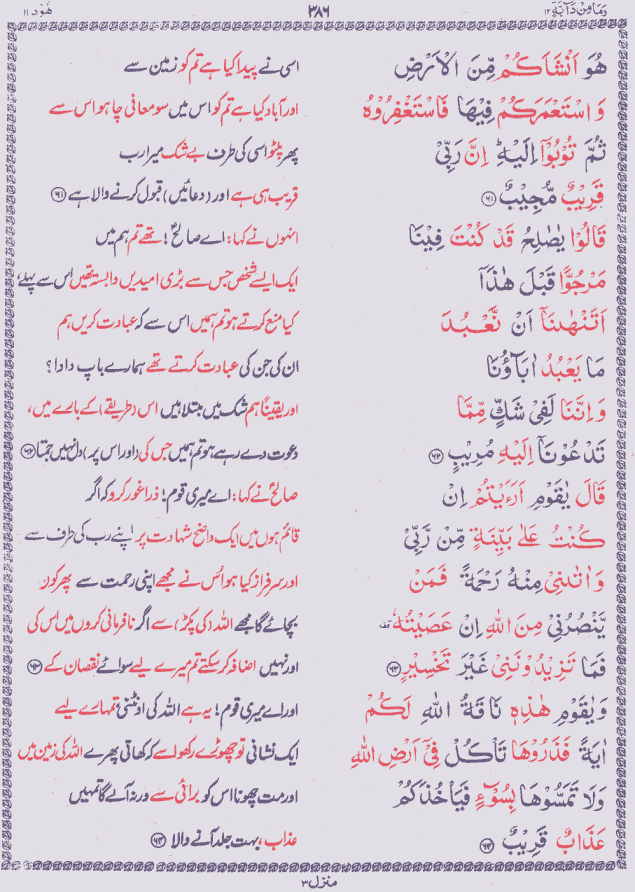 وَمَا مِنْ دَآبَّةٍ ١٢ ٣٨٦ هُوْد ١١
هُوَ اَنْشَاَكُمْ مِّنَ الْاَرْضِ اسی نے پیدا کیا ہے تم کو زمین سے
وَ اسْتَعْمَرَكُمْ فِيْهَا فَاسْتَغْفِرُوْهُ اور آباد کیا ہے تم کو اس میں سو معافی چاہو اس سے
ثُمَّ تُوْبُوْٓا اِلَيْهِ ؕ اِنَّ رَبِّيْ پھر پلٹو اسی کی طرف بے شک میرا رب
قَرِيْبٌ مُّجِيْبٌ ﴿٦١﴾ قریب ہی ہے اور (دعائیں) قبول کرنے والا ہے ﴿٦١﴾
قَالُوْا يٰصٰلِحُ قَدْ كُنْتَ فِيْنَا انہوں نے کہا: اے صالحؑ! تھے تم ہم میں
مَرْجُوًّا قَبْلَ هٰذَآ ایک ایسے شخص جس سے بڑی امیدیں وابستہ تھیں اس سے پہلے،
اَتَنْهٰىنَآ اَنْ نَّعْبُدَ کیا منع کرتے ہو تم ہمیں اس سے کہ عبادت کریں ہم
مَا يَعْبُدُ اٰبَآؤُنَا ان کی جن کی عبادت کرتے تھے ہمارے باپ دادا؟
وَ اِنَّنَا لَفِيْ شَكٍّ مِّمَّا اور یقیناً ہم شک میں مبتلا ہیں اس (طریقے) کے بارے میں،
تَدْعُوْنَآ اِلَيْهِ مُرِيْبٍ ﴿٦٢﴾ دعوت دے رہے ہو تم ہمیں جس کی (اور اس پر) دل نہیں جمتا ﴿٦٢﴾
قَالَ يٰقَوْمِ اَرَءَيْتُمْ اِنْ صالحؑ نے کہا: اے میری قوم! ذرا غور کرو کہ اگر
كُنْتُ عَلٰى بَيِّنَةٍ مِّنْ رَّبِّيْ قائم ہوں میں ایک واضح شہادت پر اپنے رب کی طرف سے
وَ اٰتٰىنِيْ مِنْهُ رَحْمَةً فَمَنْ اور سرفراز کیا ہو اُس نے مجھے اپنی رحمت سے پھر کون
يَّنْصُرُنِيْ مِنَ اللهِ اِنْ عَصَيْتُهٗ بچائے گا مجھے اللہ (کی پکڑ) سے اگر نافرمانی کروں میں اس کی
فَمَا تَزِيْدُوْنَنِيْ غَيْرَ تَخْسِيْرٍ ﴿٦٣﴾ اور نہیں اضافہ کر سکتے تم میرے لیے سوائے نقصان کے ﴿٦٣﴾
وَيٰقَوْمِ هٰذِهٖ نَاقَةُ اللهِ لَكُمْ اور اے میری قوم! یہ ہے اللہ کی اونٹنی تمہارے لیے
اٰيَةً فَذَرُوْهَا تَاْكُلْ فِيْٓ اَرْضِ اللهِ ایک نشانی تو چھوڑے رکھو اسے کہ کھاتی پھرے اللہ کی زمین میں
وَلَا تَمَسُّوْهَا بِسُوْٓءٍ فَيَاْخُذَكُمْ اور مت چھونا اس کو برائی سے ورنہ آلے گا تمہیں
عَذَابٌ قَرِيْبٌ ﴿٦٤﴾ عذاب، بہت جلد آنے والا ﴿٦٤﴾
منزل ٣